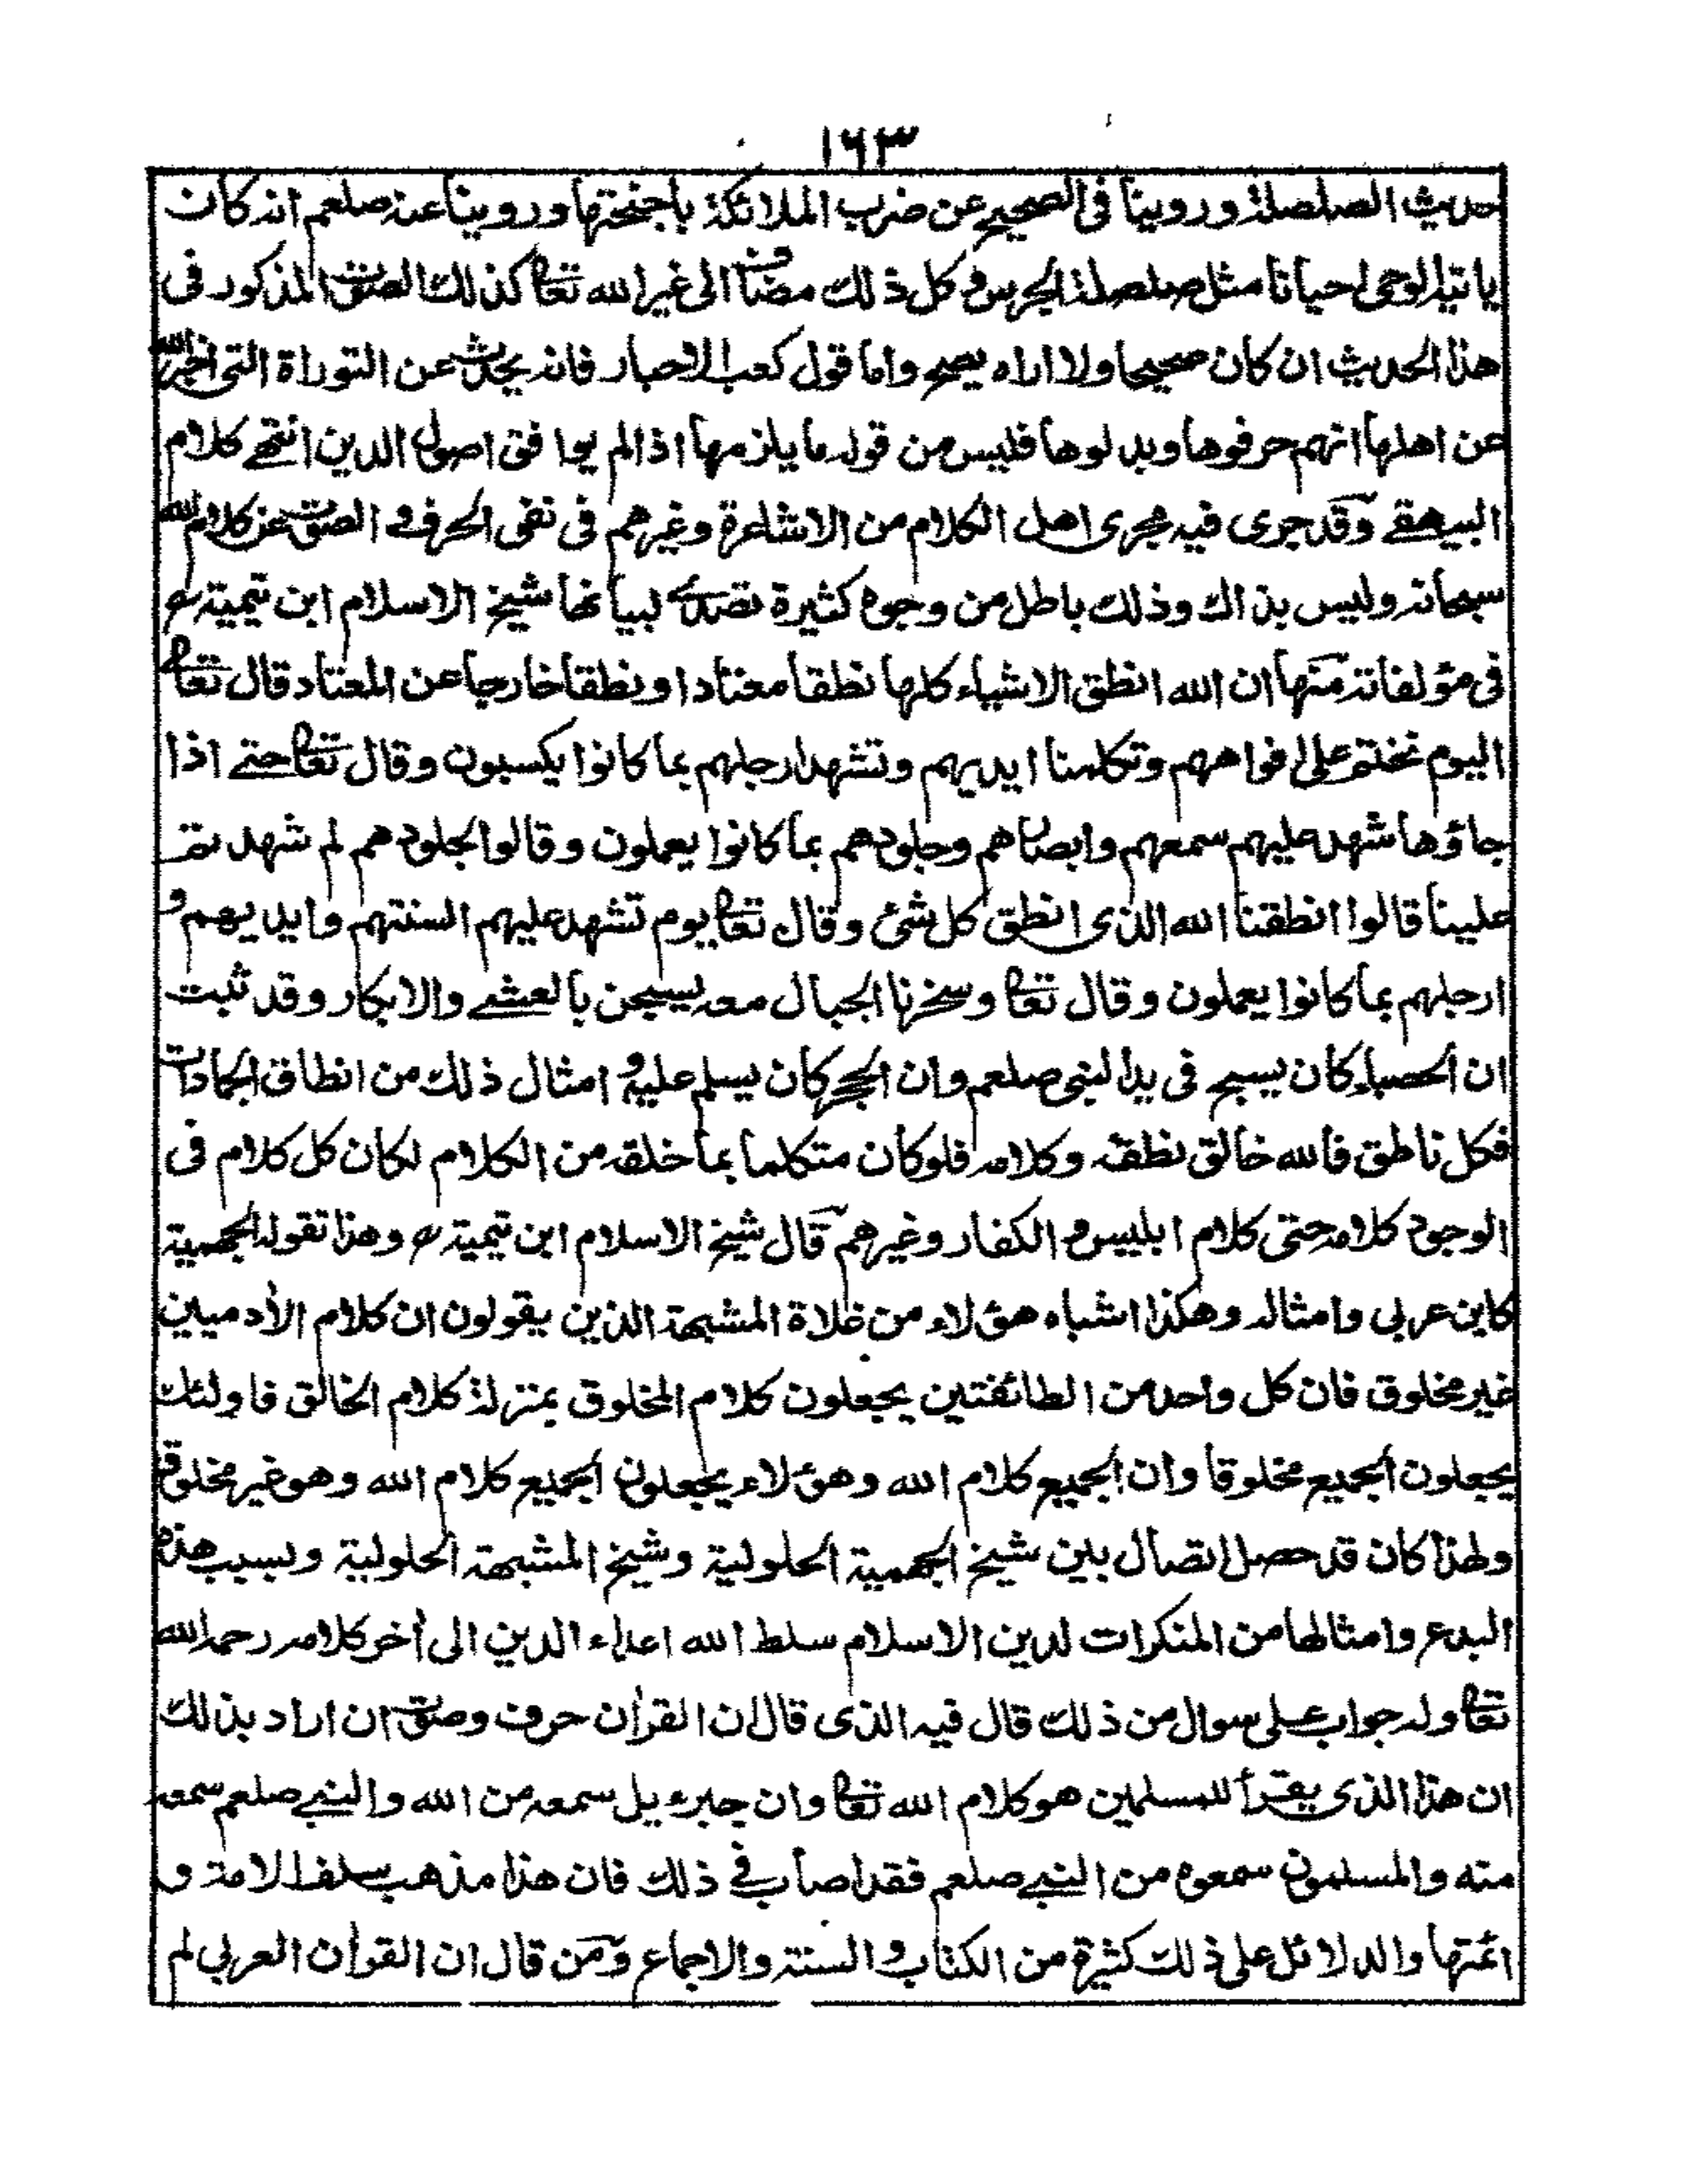 ١٦٣
حديث الصلصلة وروينا فى الصحيح عن ضرب الملائكة باجنحتها وروينا عنه صلعم انه كان
ياتيه الوحى احيانا مثل صلصلة الجرس وكل ذلك مضافا الى غير الله تعا كذلك الصوت المذكور فى
هذا الحديث ان كان صحيحا ولا اراه يصح واما قول كعب الاحبار فانه يحدث عن التوراة التى اخبر الله
عن اهلها انهم حرفوها وبدلوها فليس من قوله ما يلزمها اذا لم يوافق اصول الدين انتهى كلام
البيهقے وقد جرى فيه مجرى اهل الكلام من الاشاعرة وغيرهم فى نفى الحرف والصوت عن كلام الله
سبحانه وليس بذاك وذلك باطل من وجوه كثيرة تصدى لبيانها شيخ الاسلام ابن تيمية رح
فى مؤلفاته منها ان الله انطق الاشياء كلها نطقا معتادا ونطقا خارجا عن المعتاد قال تعا
اليوم نختم على افواههم وتكلمنا ايديهم وتشهد ارجلهم بما كانوا يكسبون وقال تعا حتے اذا
جاؤها شهد عليهم سمعهم وابصارهم وجلودهم بما كانوا يعملون وقالوا لجلودهم لم شهدتم
علينا قالوا انطقنا الله الذى انطق كل شئ وقال تعا يوم تشهد عليهم السنتهم وايديهم و
ارجلهم بما كانوا يعملون وقال تعا وسخرنا الجبال معه يسبحن بالعشے والابكار وقد ثبت
ان الحصباء كان يسبح فى يد النبى صلعم وان الحجر كان يسلم عليه وامثال ذلك من انطاق الجمادات
فكل ناطق فالله خالق نطقه وكلامه فلو كان متكلما بما خلقه من الكلام لكان كل كلام فى
الوجود كلامه حتى كلام ابليس والكفار وغيرهم قال شيخ الاسلام ابن تيمية رح وهذا تقوله الجهمية
كابن عربى وامثاله وهكذا اشباه هؤلاء من غلاة المشبهة الذين يقولون ان كلام الأدميين
غير مخلوق فان كل واحد من الطائفتين يجعلون كلام المخلوق بمنزلة كلام الخالق فاولئك
يجعلون الجميع مخلوقا وان الجميع كلام الله وهؤلاء يجعلون الجميع كلام الله وهو غير مخلوق
ولهذا كان قد حصل اتصال بين شيخ الجهمية الحلولية وشيخ المشبهة الحلولية وبسبب هذه
البدع وامثالها من المنكرات لدين الاسلام سلط الله اعداء الدين الى أخر كلامه رحمه الله
تعا وله جواب على سوال من ذلك قال فيه الذى قال ان القرأن حرف وصوت ان اراد بذلك
ان هذا الذى يقرأ للمسلمين هو كلام الله تعا وان جبرءيل سمعه من الله والنبے صلعم سمعه
منه والمسلمون سمعوه من النبے صلعم فقد اصاب فے ذلك فان هذا مذهب سلف الامة و
ائمتها والدلائل على ذلك كثيرة من الكتاب والسنة والاجماع ومن قال ان القرأن العربى لم